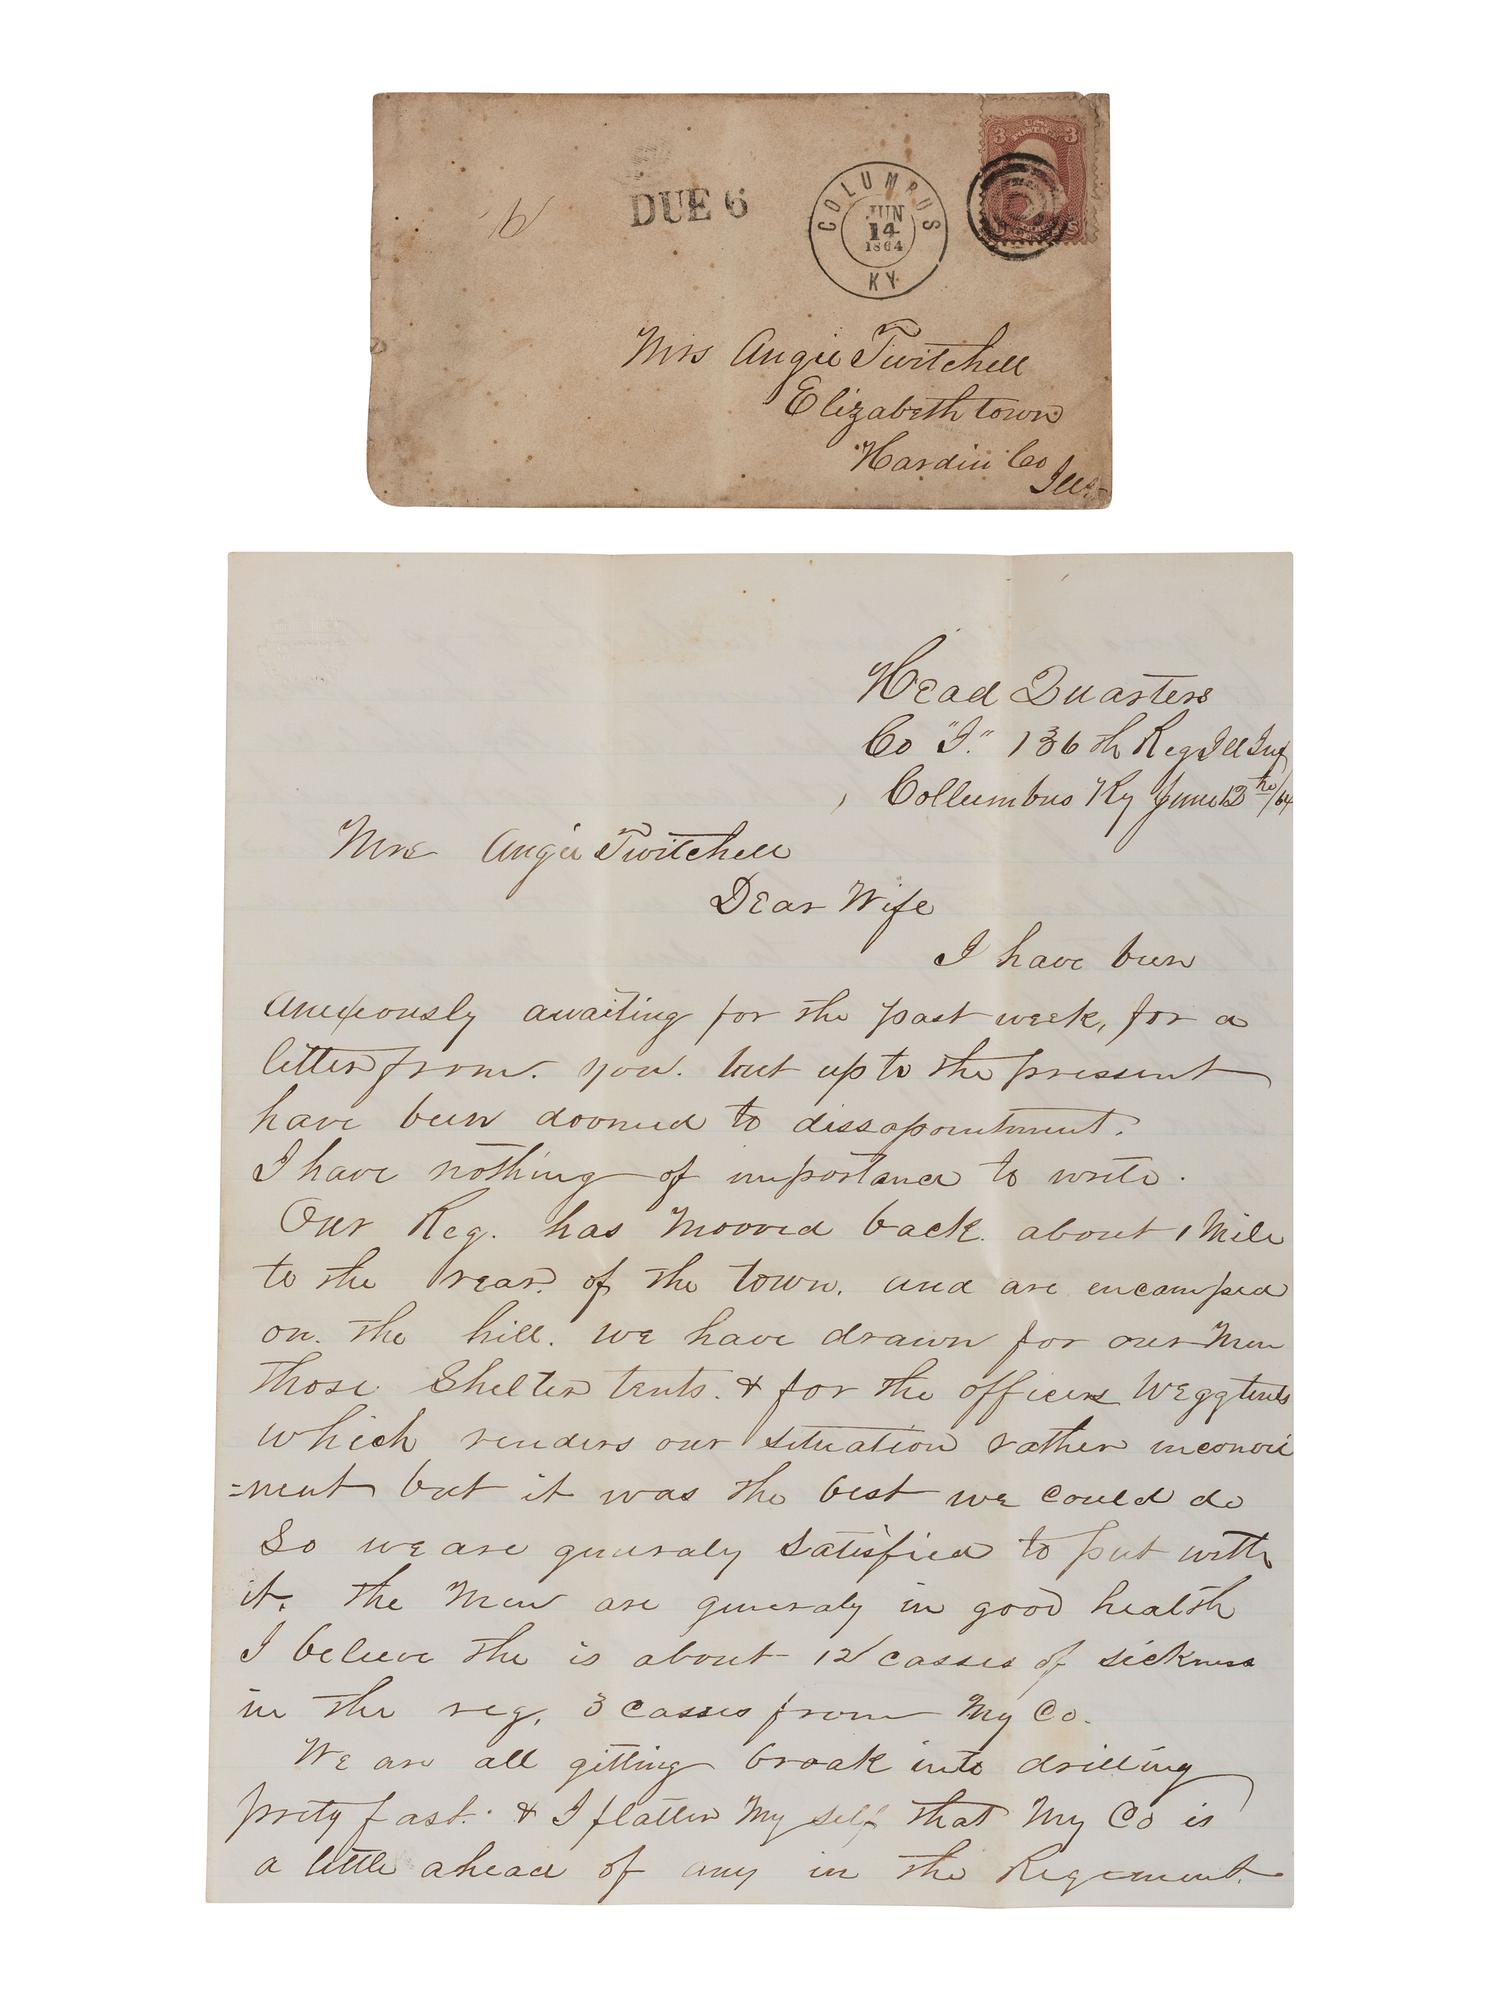 U.S. POSTAGE
3 3
DUE 6
COLUMBUS
JUN
14
1864
KY
Mrs Angie Twitchell
Elizabethtown
Hardin Co
Ills
Head Quarters
Co "I." 136th Reg Ill Inf
Collumbus Ky June 13th/64
Mrs Angie Twitchell
Dear Wife
I have been
anexiously awaiting for the past week, for a
letter from you. but up to the pressent
have been doomed to dissapointment.
I have nothing of importance to write.
Our Reg. has mooved back about 1 Mile
to the rear of the town. and are encamped
on the hill. we have drawn for our Men
those Shelter tents. & for the officers Wegg tents
which renders our situation rather inconvie
=nent but it was the best we could do
So we are generaly satisfied to put with
it. the Men are generaly in good health
I believe the is about 12 casses of sickness
in the reg. 3 casses from My Co.
We are all gitting broak into drilling
prity fast. & I flatter My self that My Co is
a little ahead of any in the Regement.